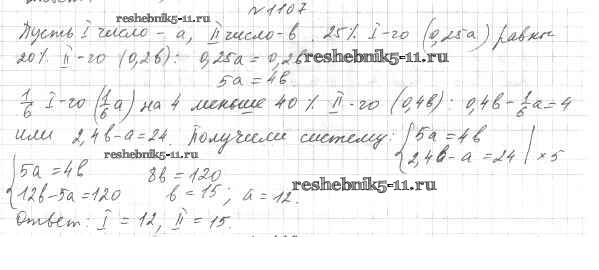 №1107
reshebnik5-11.ru
Пусть I число - а, II число - в. 25% I-го (0,25а) равны
20% II-го (0,2в): 0,25а = 0,2в
reshebnik5-11.ru
5а = 4в
1/6 I-го (1/6 а) на 4 меньше 40% II-го (0,4в): 0,4в - 1/6 а = 4
или 2,4в - а = 24. Получили систему: { 5а = 4в
2,4в - а = 24 | × 5
reshebnik5-11.ru
{ 5а = 4в 8в = 120
12в - 5а = 120 в = 15; а = 12.
reshebnik5-11.ru
Ответ: I = 12, II = 15.